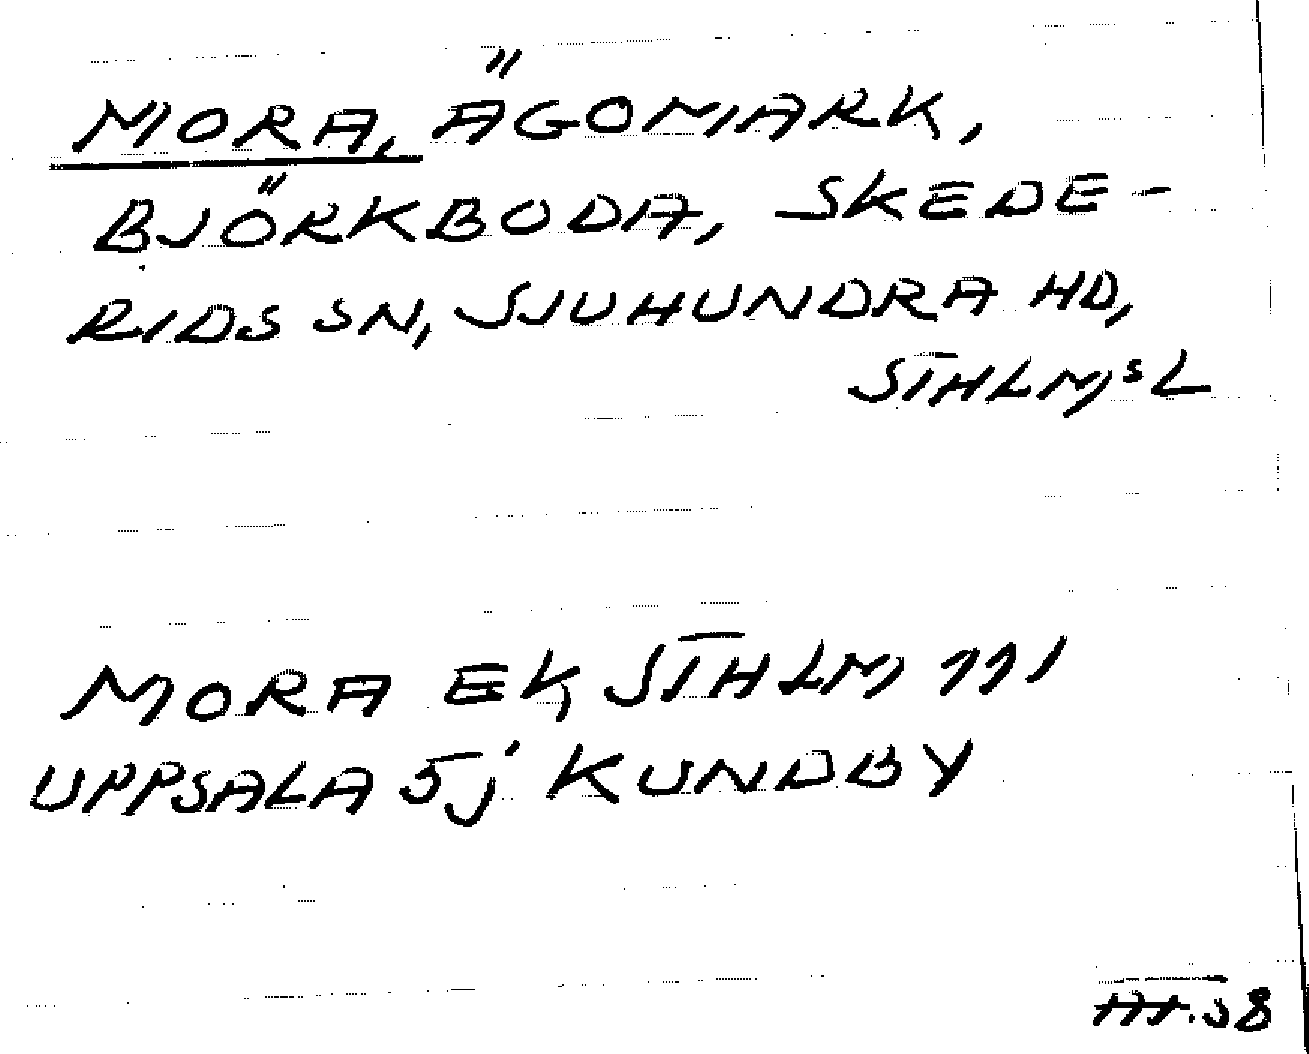 MORA, ÄGOMARK,
BJÖRKBODA, SKEDE-
RIDS SN, SJUHUNDRA HD,
STHLMS L
MORA EK STHLM 111
UPPSALA 5j KUNDBY